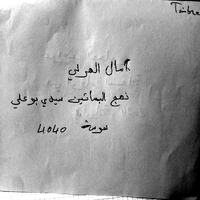 Timbre
آمال العربي
نهج البساتين سيدي بوعلي
سوسة 4040